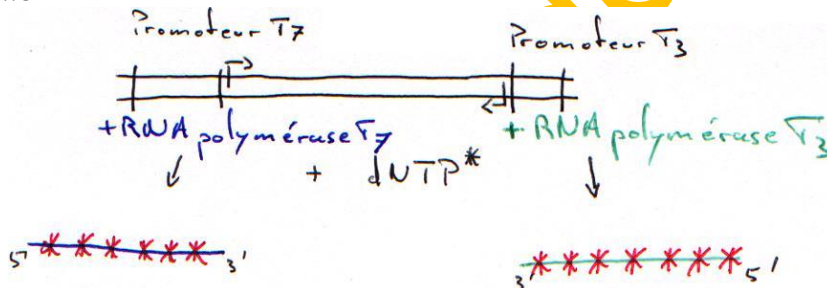 Promoteur T7
Promoteur T3
+ RNA polymérase T7
+ RNA polymérase T3
+ dNTP*
5' 3'
3' 5'